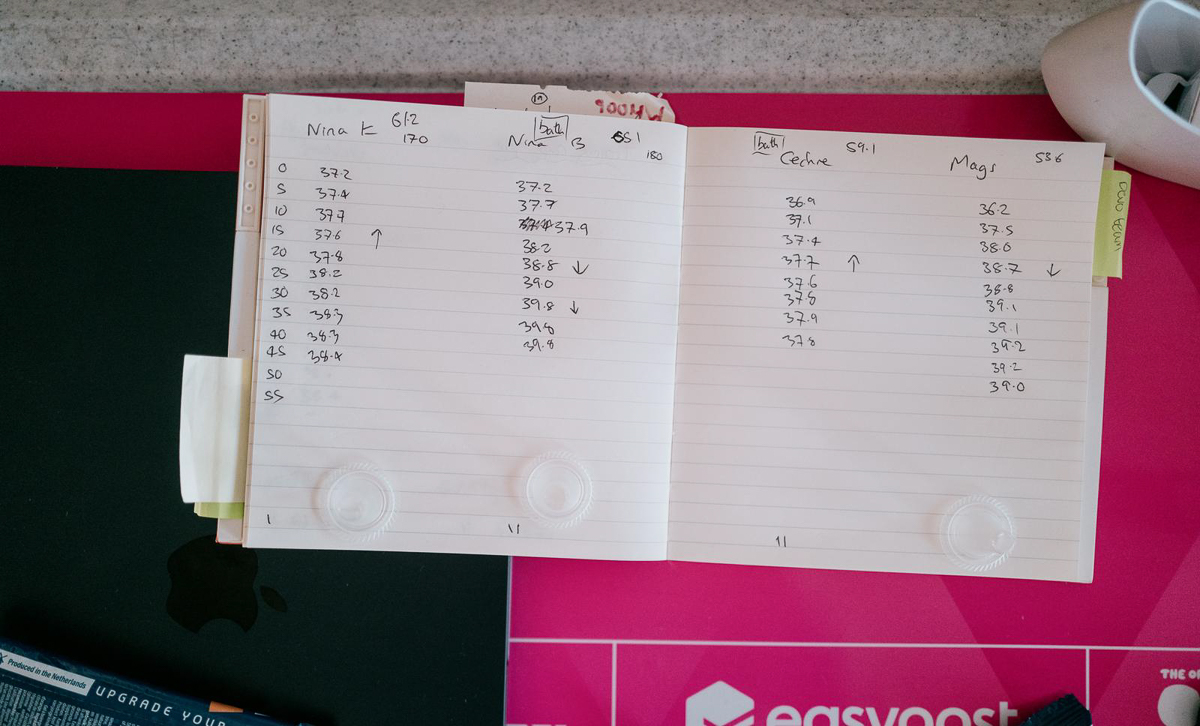 19
WHOOP
Nina K 61.2
170
bath
Nina B 55 1
180
0 37.2 37.2
5 37.4 37.7
10 37.7 37.9
15 37.6 ↑ 38.2
20 37.8 38.8 ↓
25 38.2 39.0
30 38.2 39.8 ↓
35 38.3 39.8
40 38.3 39.8
45 38.4
50
55
1 11
bath
Cechre 59.1 Mags 53.6
36.9 36.2
37.1 37.5
37.4 38.0
37.7 ↑ 38.7 ↓
37.6 38.8
37.8 39.1
37.9 39.1
37.8 39.2
39.2
39.0
11
Produced in the Netherlands
UPGRADE YOUR
easypost
THE